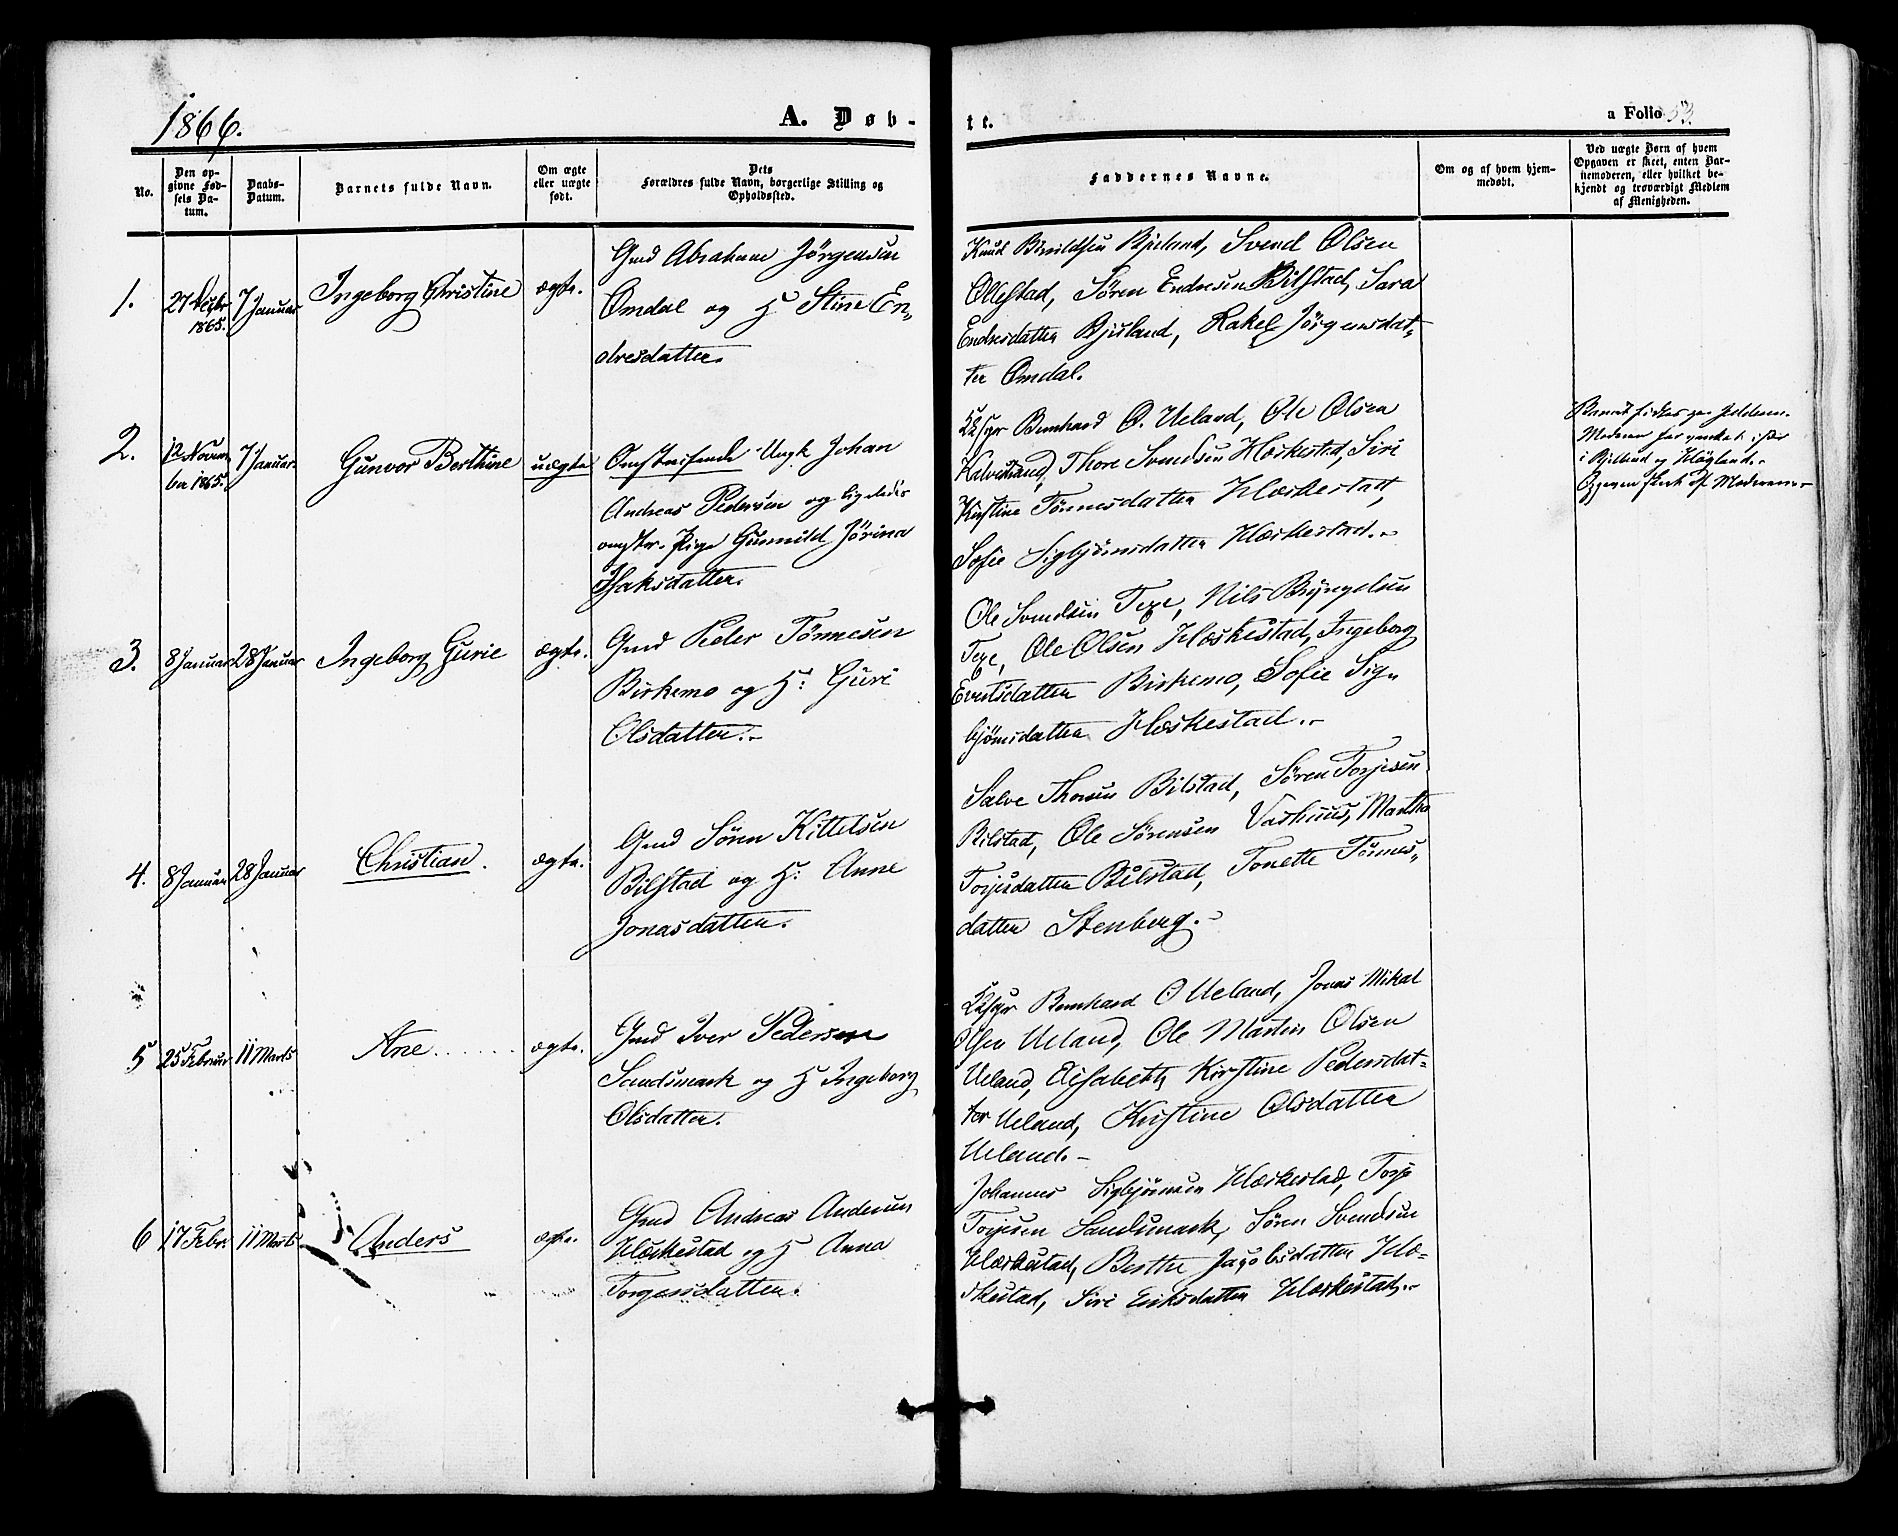 1866.
A. Døb-
te.
a Folio 53
No.
Den op-
givne Fød-
sels Da-
tum.
Daabs-
Datum.
Barnets fulde Navn.
Om ægte
eller uægte
født.
Dets
Forældres fulde Navn, borgerlige Stilling og
Opholdssted.
Faddernes Navne.
Om og af hvem hjem-
medøbt.
Ved uægte Børn af hvem
Opgaven er skeet, enten Bar-
nemoderen, eller hvilket be-
kjendt og troværdigt Medlem
af Menigheden.
1.
27 Decbr
1865.
7 Januar
Ingeborg Christine
ægte.
Gmd Abraham Jörgensen
Omdal og H Stine En-
dresdatter.
Knud Bjeland, Svend Olsen
Ollestad, Sören Endresen Bilstad, Sara
Endresdatter Bjeland, Rakel Jörgensdat-
ter Omdal.
2.
12 Novem
ber 1865.
7 Januar.
Gunvor Berthine
uægte
Omstreifende Ungk Johan
Andreas Pedersen og ligeledes
omstr. Pige Gunnild Jörina
Isaksdatter.
Bernhard O. Ueland, Ole Olsen
Thore Svendsen Hæskestad, Siri
Kirstine Tönnesdatter Hæskestad,
Sofie Sigbjörnsdatter Hæskestad.-
Moderen
i Bjelland og
Opgaven skeet af Moderen.-
3.
8 Januar
28 Januar
Ingeborg Gurie
ægte.
Gmd Peder Tönnesen
Birkemo og H: Guri
Olsdatter.-
Ole Svendsen Tege, Nils Bryngelsen
Tege, Ole Olsen Hæskestad, Ingeborg
Evertsdatter Birkemo, Sofie Sig-
björnsdatter Hæskestad.-
4.
8 Januar
28 Januar
Christian.
ægte.
Gmd Sören Kittelsen
Bilstad og H: Anne
Jonasdatter.
Salve Thorsen Bilstad, Sören Torjesen
Bilstad, Ole Sörensen Varhuus, Martha
Torjesdatter Bilstad, Tonette Tönnes-
datter Stenberg.-
5
25 Februar
11 Marts
Ane
ægte.
Gmd Iver Pedersen
Sandsmark og H Ingeborg
Olsdatter.
Bernhard O Ueland, Jonas Mikal
Olsen Ueland, Ole Martin Olsen
Ueland, Elisabeth Kirstine Pedersdat-
ter Ueland, Kirstine Olsdatter
Ueland.-
6
17 Febr.
11 Marts
Anders
ægte.
Gmd Andreas Andersen
Hæskestad og H Anna
Torgersdatter.
Johannes Sigbjörnsen Hæskestad, Torje
Torjesen Sandsmark, Sören Svendsen
Hæskestad, Berthe Jacobsdatter Hæ-
skestad, Siri Eriksdatter Hæskestad.-